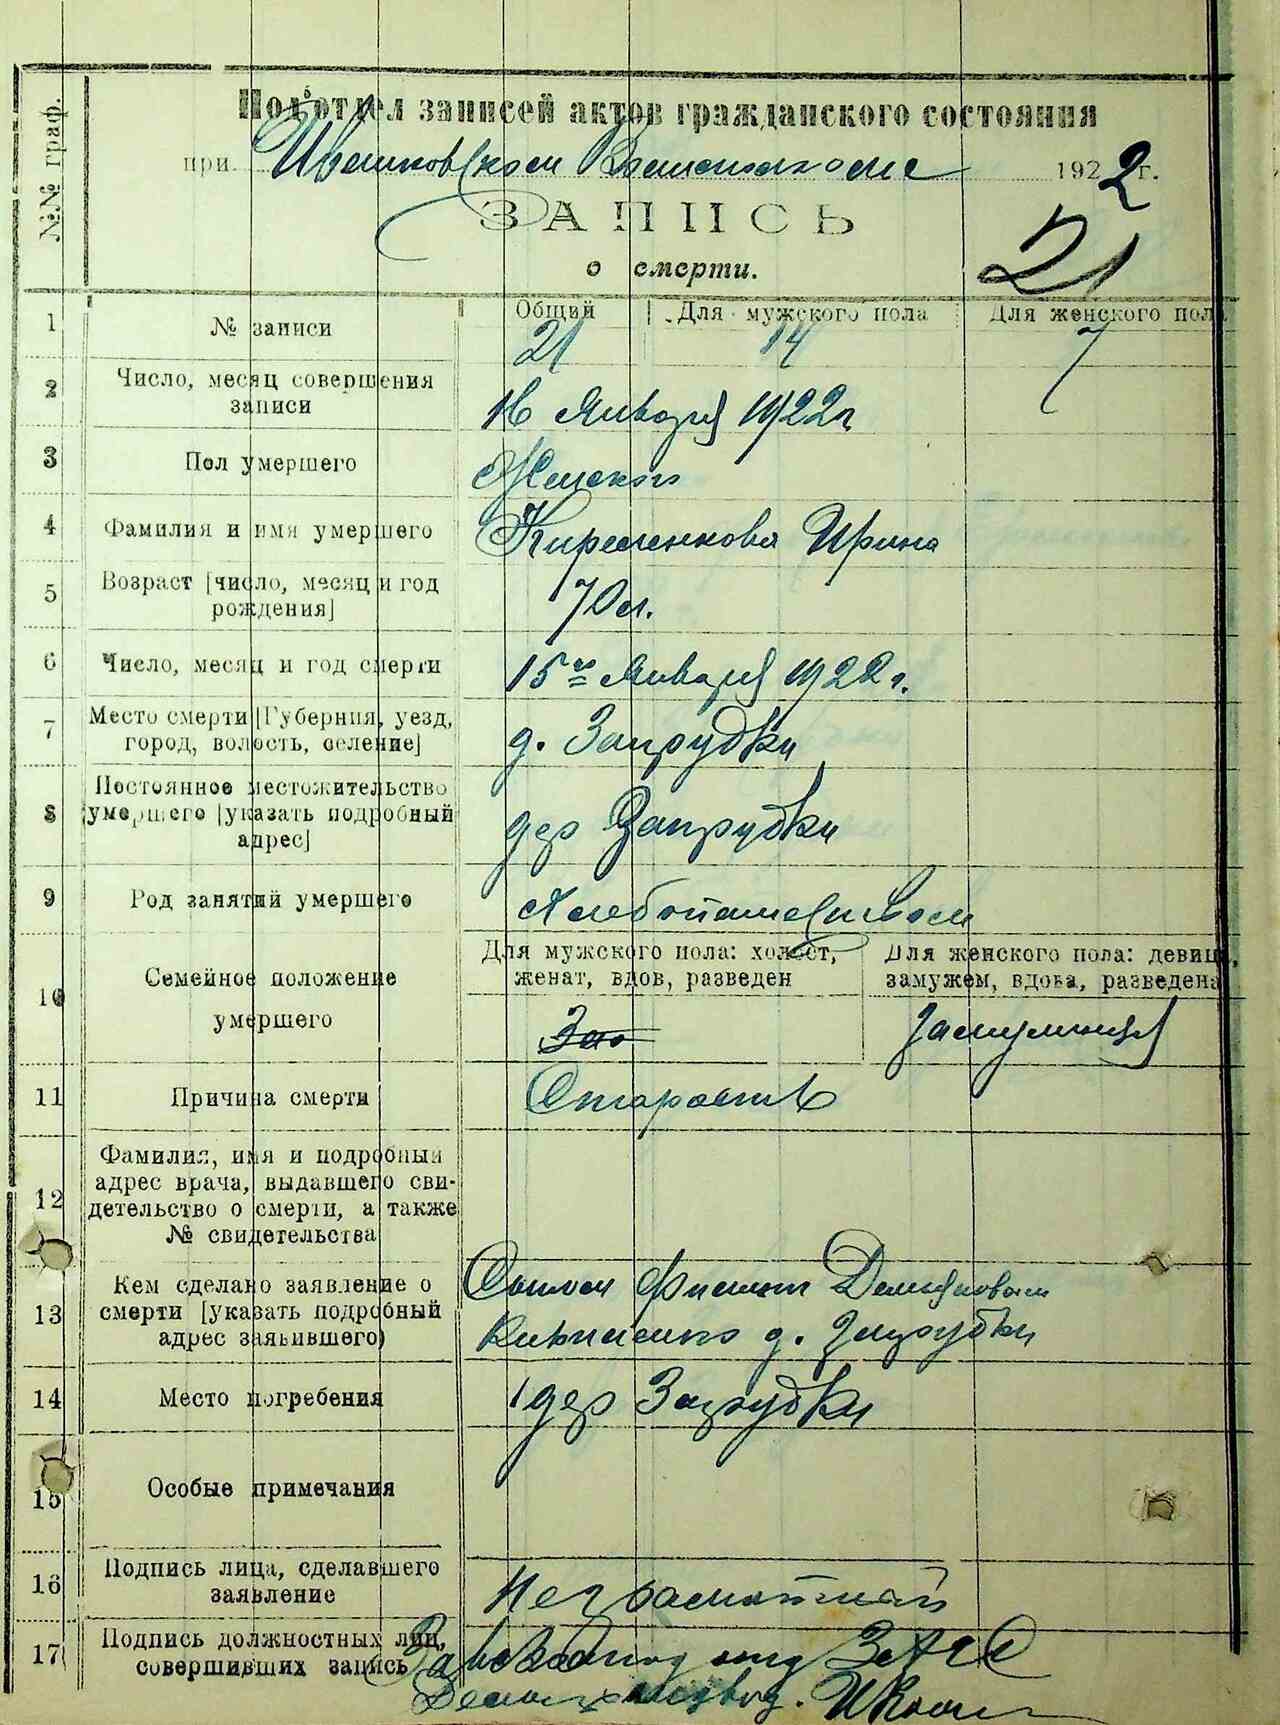 №№ граф.
Под'отдел записей актов гражданского состояния
при Ивашковском Волисполкоме 1922 г.
ЗАПИСЬ
о смерти.
21
1 № записи Общий Для мужского пола Для женского пола
21 14 7
2 Число, месяц совершения
записи
16 Января 1922 г
3 Пол умершего Женского
4 Фамилия и имя умершего Ирина
5 Возраст [число, месяц и год
рождения]
70 л.
6 Число, месяц и год смерти 15го Января 1922 г.
7 Место смерти [Губерния, уезд,
город, волость, селение]
д. Запрудки
8 Постоянное местожительство
умершего [указать подробный
адрес]
дер Запрудки
9 Род занятий умершего Хлебопашеством
10 Семейное положение
умершего
Для мужского пола: холост,
женат, вдов, разведен
Для женского пола: девица,
замужем, вдова, разведена
11 Причина смерти Старость
12 Фамилия, имя и подробный
адрес врача, выдавшего сви-
детельство о смерти, а также
№ свидетельства
13 Кем сделано заявление о
смерти [указать подробный
адрес заявившего)
Сыном
д. Запрудки
14 Место погребения дер Запрудки
15 Особые примечания
16 Подпись лица, сделавшего
заявление
Неграмотный
17 Подпись должностных лиц,
совершивших запись
ЗАГС